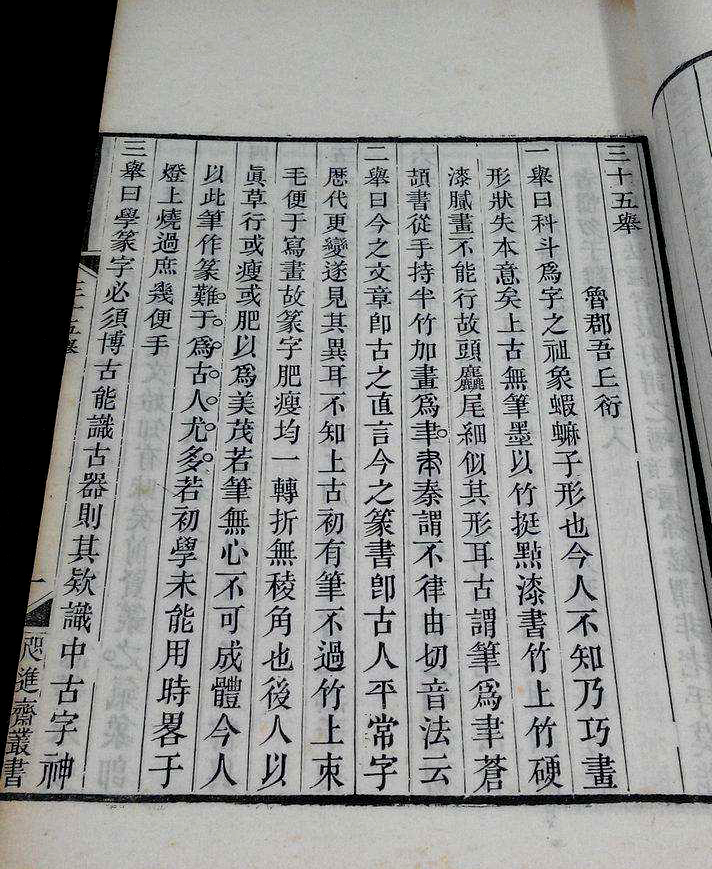 三十五舉
魯郡吾丘衍
一舉曰科斗爲字之祖象蝦蟆子形也今人不知乃巧畫
形狀失本意矣上古無筆墨以竹挺點漆書竹上竹硬
漆膩畫不能行故頭麤尾細似其形耳古謂筆爲聿蒼
頡書從手持半竹加畫爲聿秦謂不律由切音法云
二舉曰今之文章卽古之直言今之篆書卽古人平常字
歷代更變遂見其異耳不知上古初有筆不過竹上束
毛便于寫畫故篆字肥瘦均一轉折無稜角也後人以
眞草行或瘦或肥以爲美茂若筆無心不可成體今人
以此筆作篆難于爲古人尤多若初學未能用時畧于
燈上燒過庶幾便手
三舉曰學篆字必須博古能識古器則其欵識中古字神
三十五舉
一
咫進齋叢書